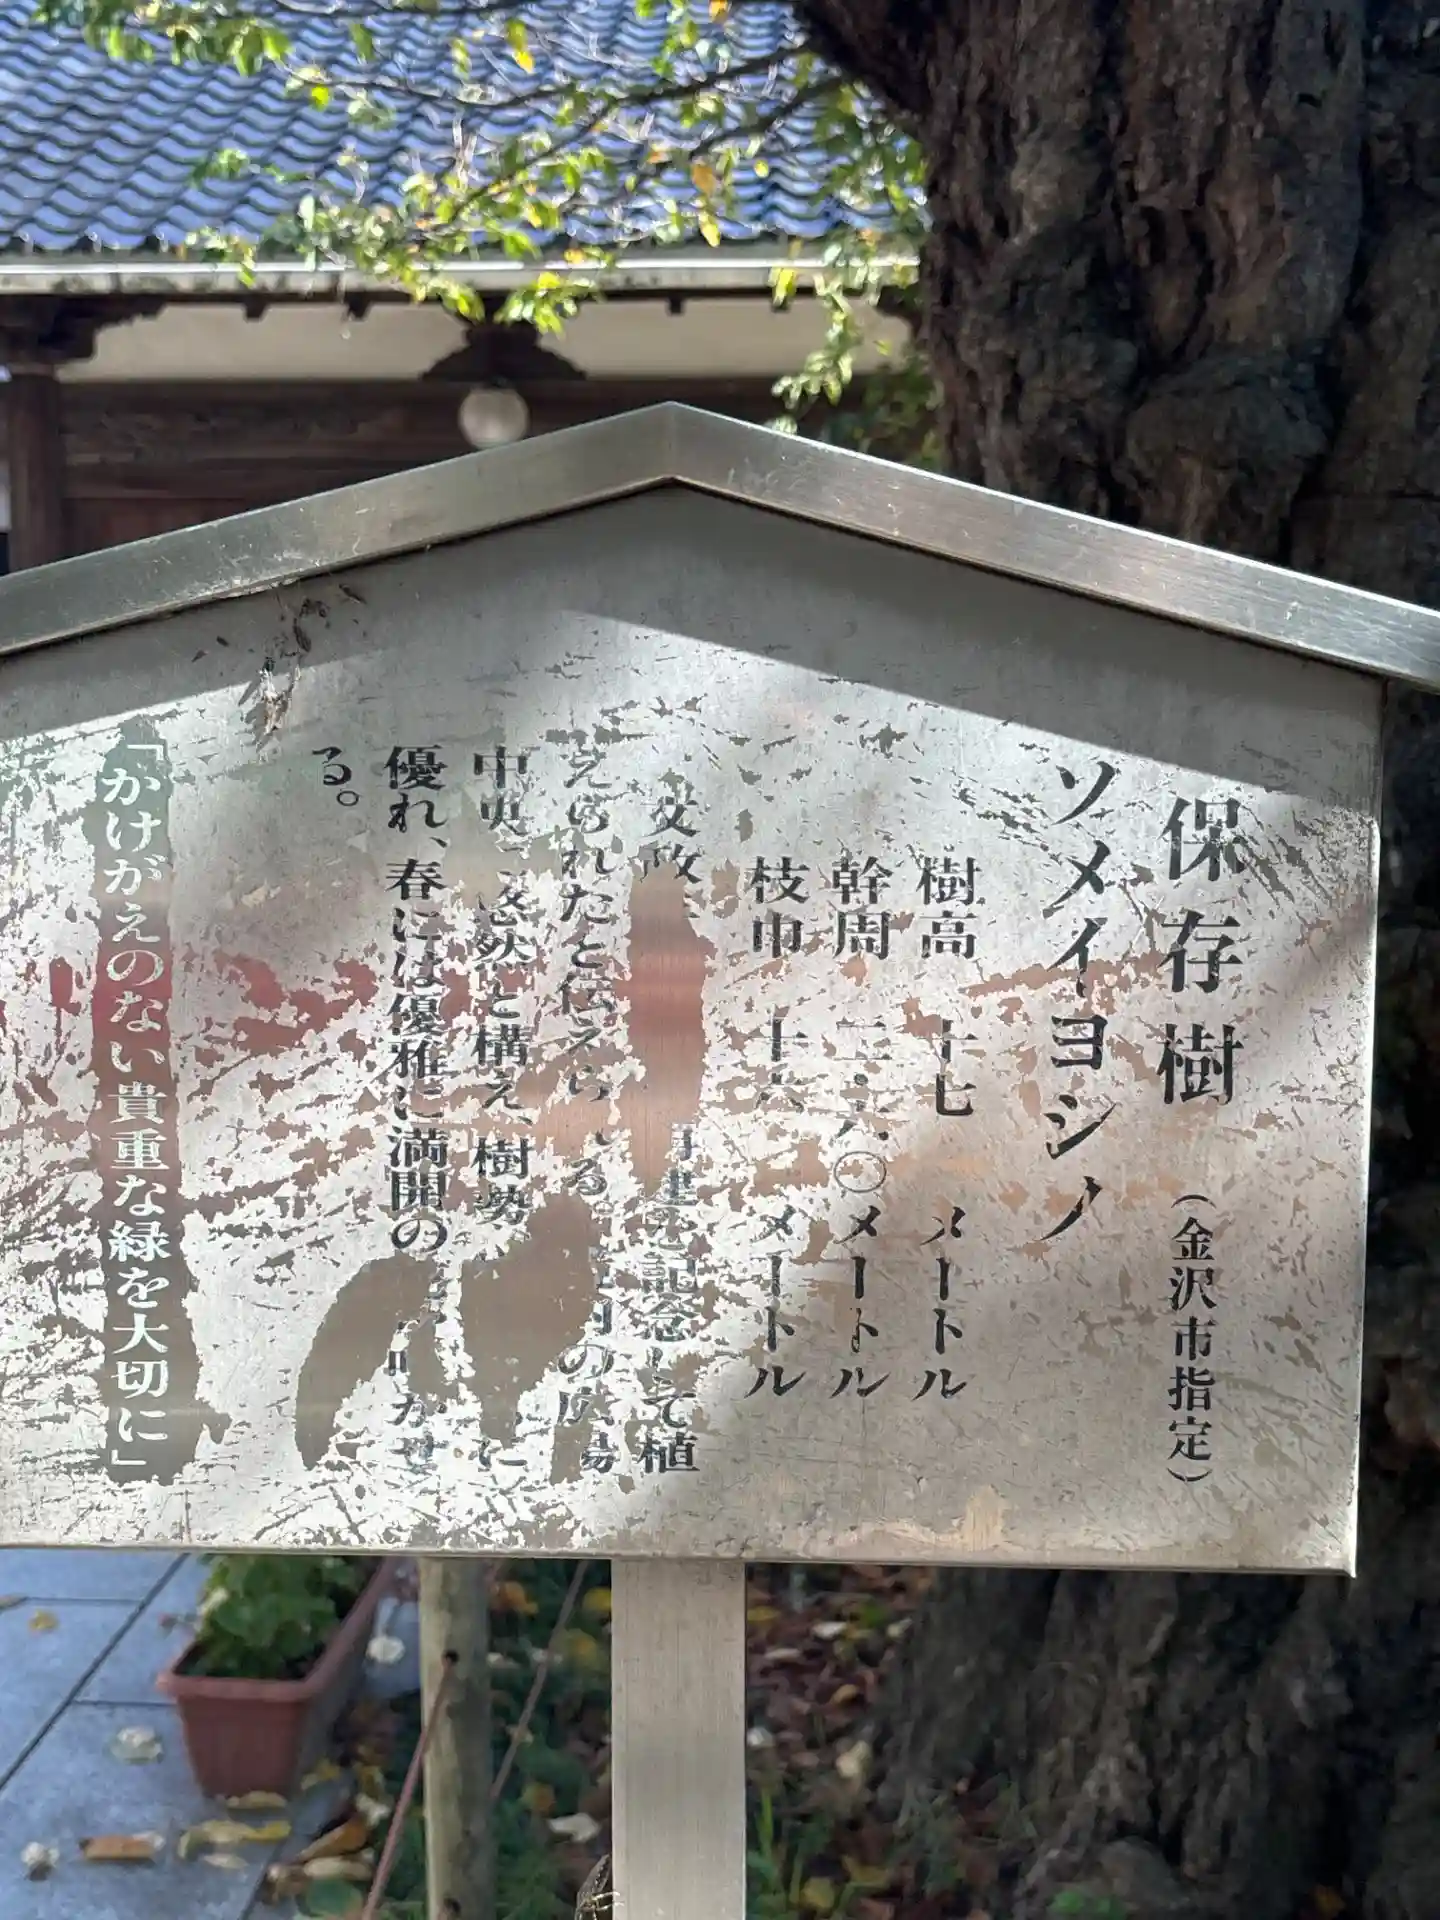 保存樹（金沢市指定）
ソメイヨシノ
樹高 十七 メートル
幹周 三・六〇メートル
枝巾 十六 メートル
文政 再建を記念して植
えられたと伝えられる。 の広場
中央 悠然と構え、樹勢 に
優れ、春には優雅に満開の 咲かせ
る。
「かけがえのない貴重な緑を大切に」